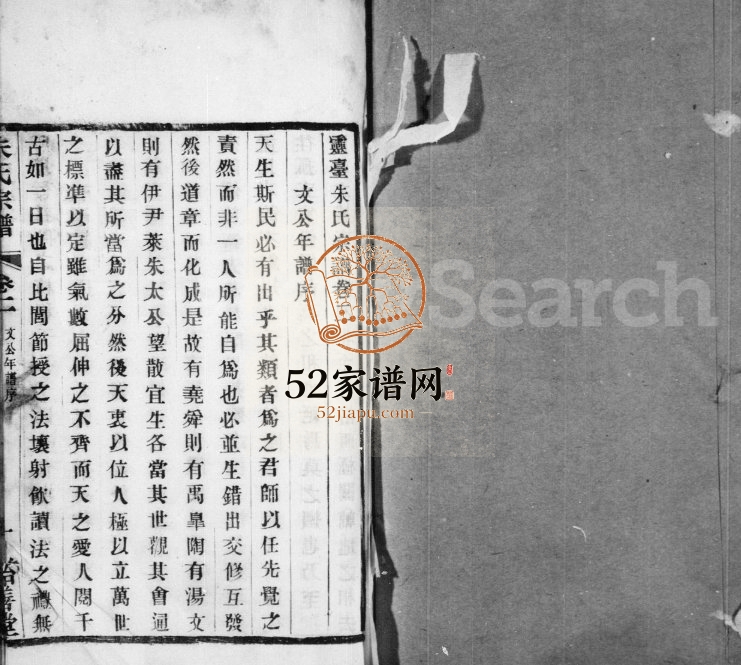 靈臺朱氏宗譜卷二
文公年譜序
天生斯民必有出乎其類者爲之君師以任先覺之
責然而非一人所能自爲也必並生錯出交修互發
然後道章而化成是故有堯舜則有禹臯陶有湯文
則有伊尹萊朱太公望散宜生各當其世觀其會通
以盡其所當爲之分然後天衷以位人極以立萬世
之標準以定雖氣數屈伸之不齊而天之愛人閱千
古如一日也自比閭節授之法壞射飲讀法之禮無
朱氏宗譜
卷二
文公年譜序
一
Search
52家谱网
52jiapu.com